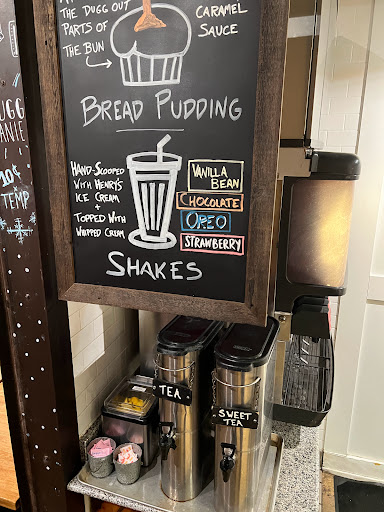 THE DUGG OUT
PARTS OF
THE BUN
CARAMEL
SAUCE
BREAD PUDDING
HAND-SCOOPED
WITH HENRY'S
ICE CREAM
+
TOPPED WITH
WHIPPED CREAM
VANILLA
BEAN
CHOCOLATE
OREO
STRAWBERRY
SHAKES
10¢
TEMP
TEA
SWEET
TEA